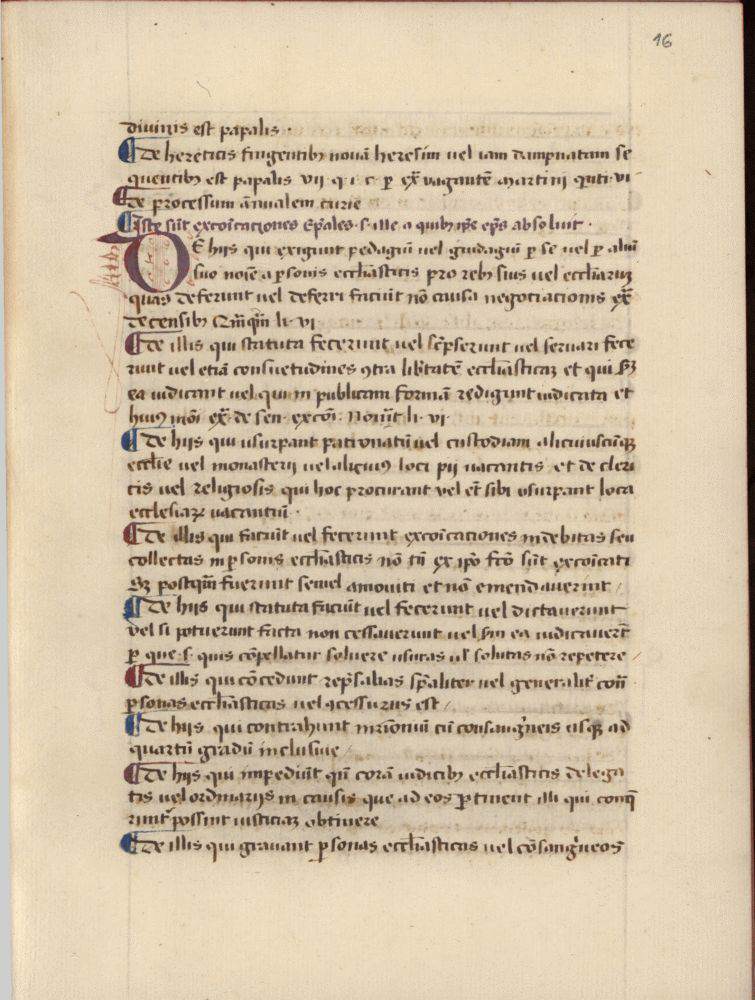 16
diuinis est papalis ·
De hereticis fingentibꝫ nouā heresim uel iam dampnatam se
quentibꝫ est papalis vij q · i · c · ꝑ exͣ vagantē martini quīti · vi ·
De processum ānualem curie
Iste sūt excōicationes Epāles · s · ille a quibꝫ ip̄e ep̄s absoluit ·
DE hijs qui exigunt pedagiū uel guidagiū ꝑ se uel ꝑ aliū
suo noīe a ꝑsonis eccl̄iasticis pro rebꝫ suis uel eccl̄iarum
quas deferunt uel deferri faciūt nō causa negotiacionis exͣ
de censibꝫ Qm̄qm̄ li · vi
De illis qui statuta fecerunt uel sc̄pserunt uel seruari fece
runt uel etiā consuetudines ꝯtra lib̄tatē eccl̄iasticaꝫ et qui ẜm
ea iudicant uel qui in publicam formā redigunt iudicata et
huiꝰ mōi exͣ · de sen · excōi · Nouīt li · vi ·
De hijs qui usurpant patronatū uel custodiam alicuiuscūqꝫ
eccl̄ie uel monasterij uel aliquiꝰ loci pij vacantis et de cleri
cis uel religiosis qui hoc procurant vel et̄ sibi usurpant loca
ecclesiaꝝ uacantiū ·
De illis qui faciūt uel fecerunt excōicationes indebitas seu
collectas in ꝑsonis eccl̄iasticis nō tn̄ ex ip̄o fcō sūt excōicati
Sꝫ postqm̄ fuerunt semel amoniti et nō emendauerint /
De hijs qui statuta faciūt uel fecerunt uel dictauerunt
vel si potuerunt facta non cessauerunt uel ẜm ea iudicauer̄t
ꝑ que · s · quis cōpellatur soluere usuras ul̄ solutas nō repetere /
De illis qui cōcedunt rep̄salias sp̄aliter uel generalit̄ cont̄
ꝑsonas eccl̄iasticas uel ꝯcessurus est /
De hijs qui contrahunt mr̄ioniū cū consanguīneis usqꝫ ad
quartū gradū inclusiue /
De hijs qui impediūt quī corā iudicibꝫ eccl̄iasticis delega
tis uel ordinarijs in causis que ad eos ꝑtinent illi qui conq̄
runt̄ possint iusticiaꝫ obtinere
De illis qui grauant ꝑsonas eccl̄iasticas uel cōsanguīneos